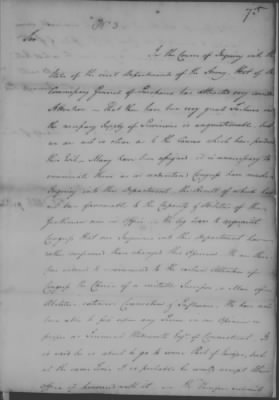 No 3
75
Sir
In the Course of Inquiry into the
State of the civil Departments of the Army, that of the
Commissary General of Purchases has attracted very considerable
Attention — That there have been very great Failures in
the necessary Supply of Provisions is unquestionable, but
we are not so clear as to the Causes which have produced
this Evil — Many have been assigned, it is unnecessary to
enumerate them as we understand Congress have made an
Inquiry into this Department, the Result of which has
not been favourable to the Capacity or Abilities of those
Gentlemen now in Office — We beg leave to represent
Congress that our Inquiries into this Department have
rather confirmed than changed this Opinion. We are there-
fore induced to recommend to the earliest Attention of
Congress the Choice of a suitable Successor, a Man of
Abilities extensive Connections & Influence. We have not
been able to fix upon any Person in our Opinion so
proper as Jeremiah Wadsworth Esqr. of Connecticut. It
is said he is about to go to some Part of Europe, but
at the same Time it is probable he would accept this
Office if honoured with it